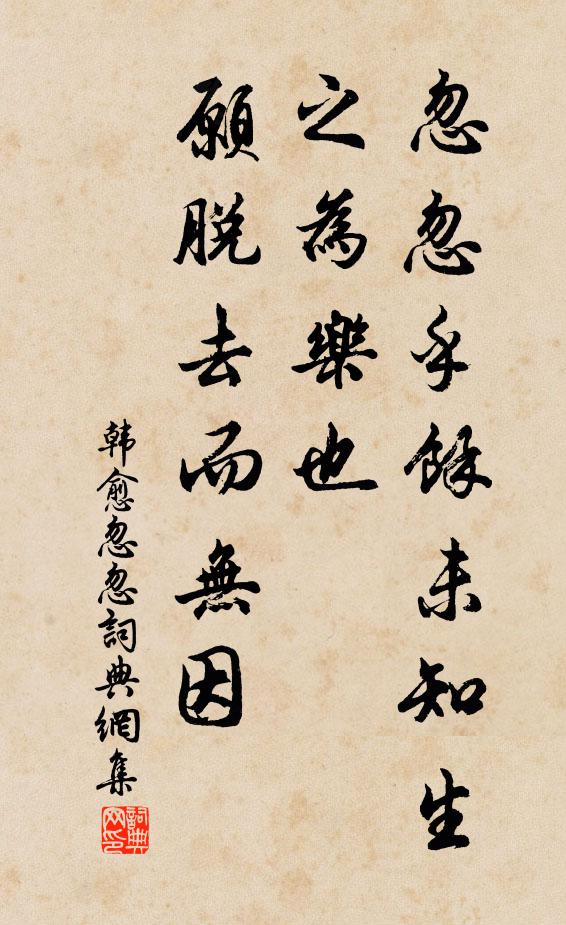 忽忽乎餘未知生
之為樂也
願脱去而無因
韩愈忽忽詞典網集
詞典
网印